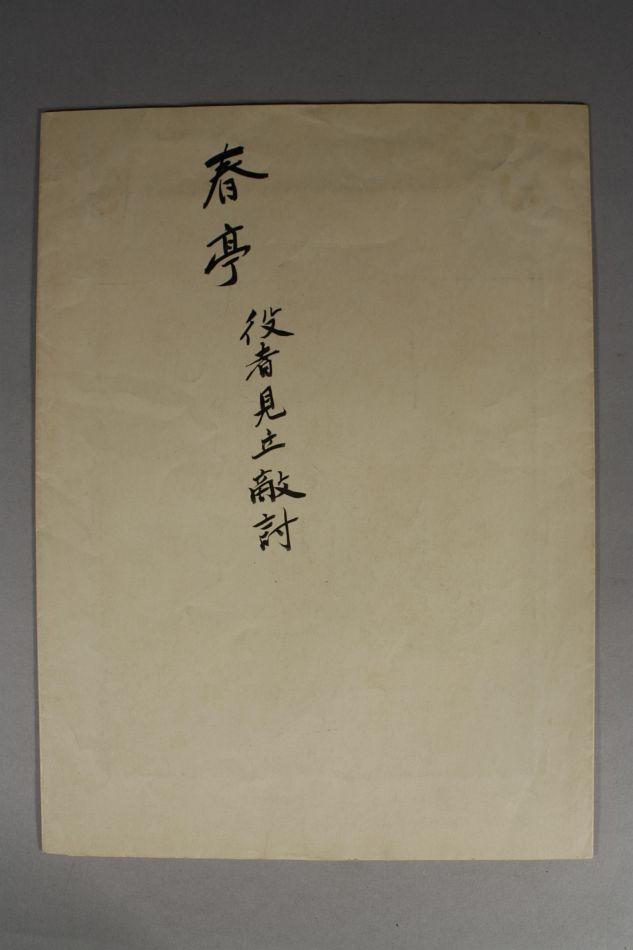 春亭
役者見立敵討